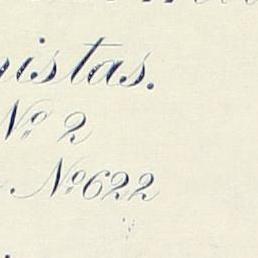 istas.
Nº 2
Nº 622